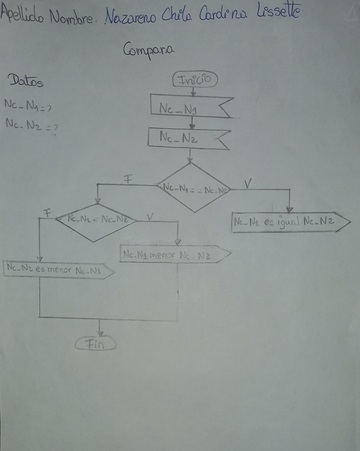 Apellido Nombre: Nazareno Chila Cardina Lissette
Compara
Datos
Nc_N1=?
Nc_N2=?
Inicio
Nc_N1
Nc_N2
Nc_N1==Nc_N2
F
V
Nc_N1 es igual Nc_N2
F
V
Nc_N1 menor Nc_N2
es menor Nc_N1
Fin